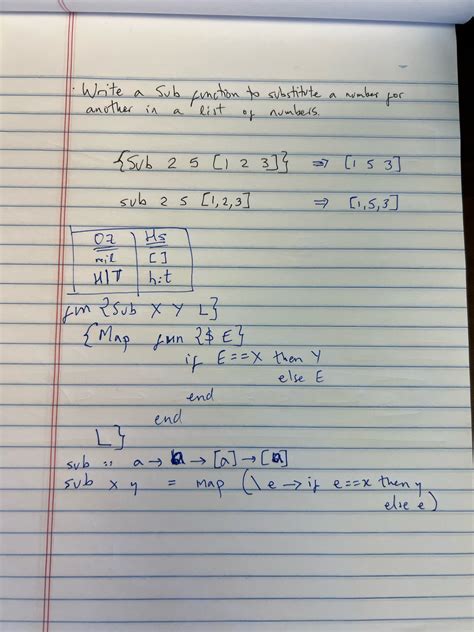 . Write a Sub function to substitute a number for
another in a list of numbers.
{Sub 2 5 [1 2 3]} ⇒ [1 5 3]
sub 2 5 [1,2,3] ⇒ [1,5,3]
Oz Hs
nil []
H|T h:t
fun {Sub X Y L}
{Map fun {$ E}
if E==X then Y
else E
end
end
L}
sub :: a → a → [a] → [a]
sub x y = map (\e → if e==x then y
else e)